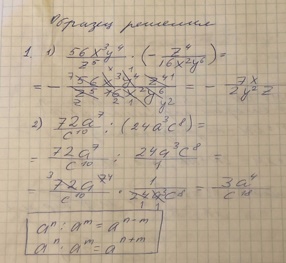 Образец решения
1. 1) 56x³y⁴/z⁵ · (− z⁴/16x²y⁶) =
= − 56x³y⁴ z⁴/z⁵ 16x²y⁶ = − 7x/2y²z
2) 72a⁷/c¹⁰ : (24a³c⁸) =
= 72a⁷/c¹⁰ : 24a³c⁸/1 =
= 72a⁷/c¹⁰ · 1/24a³c⁸ = 3a⁴/c¹⁸
aⁿ : aᵐ = aⁿ⁻ᵐ
aⁿ : aᵐ = aⁿ⁺ᵐ